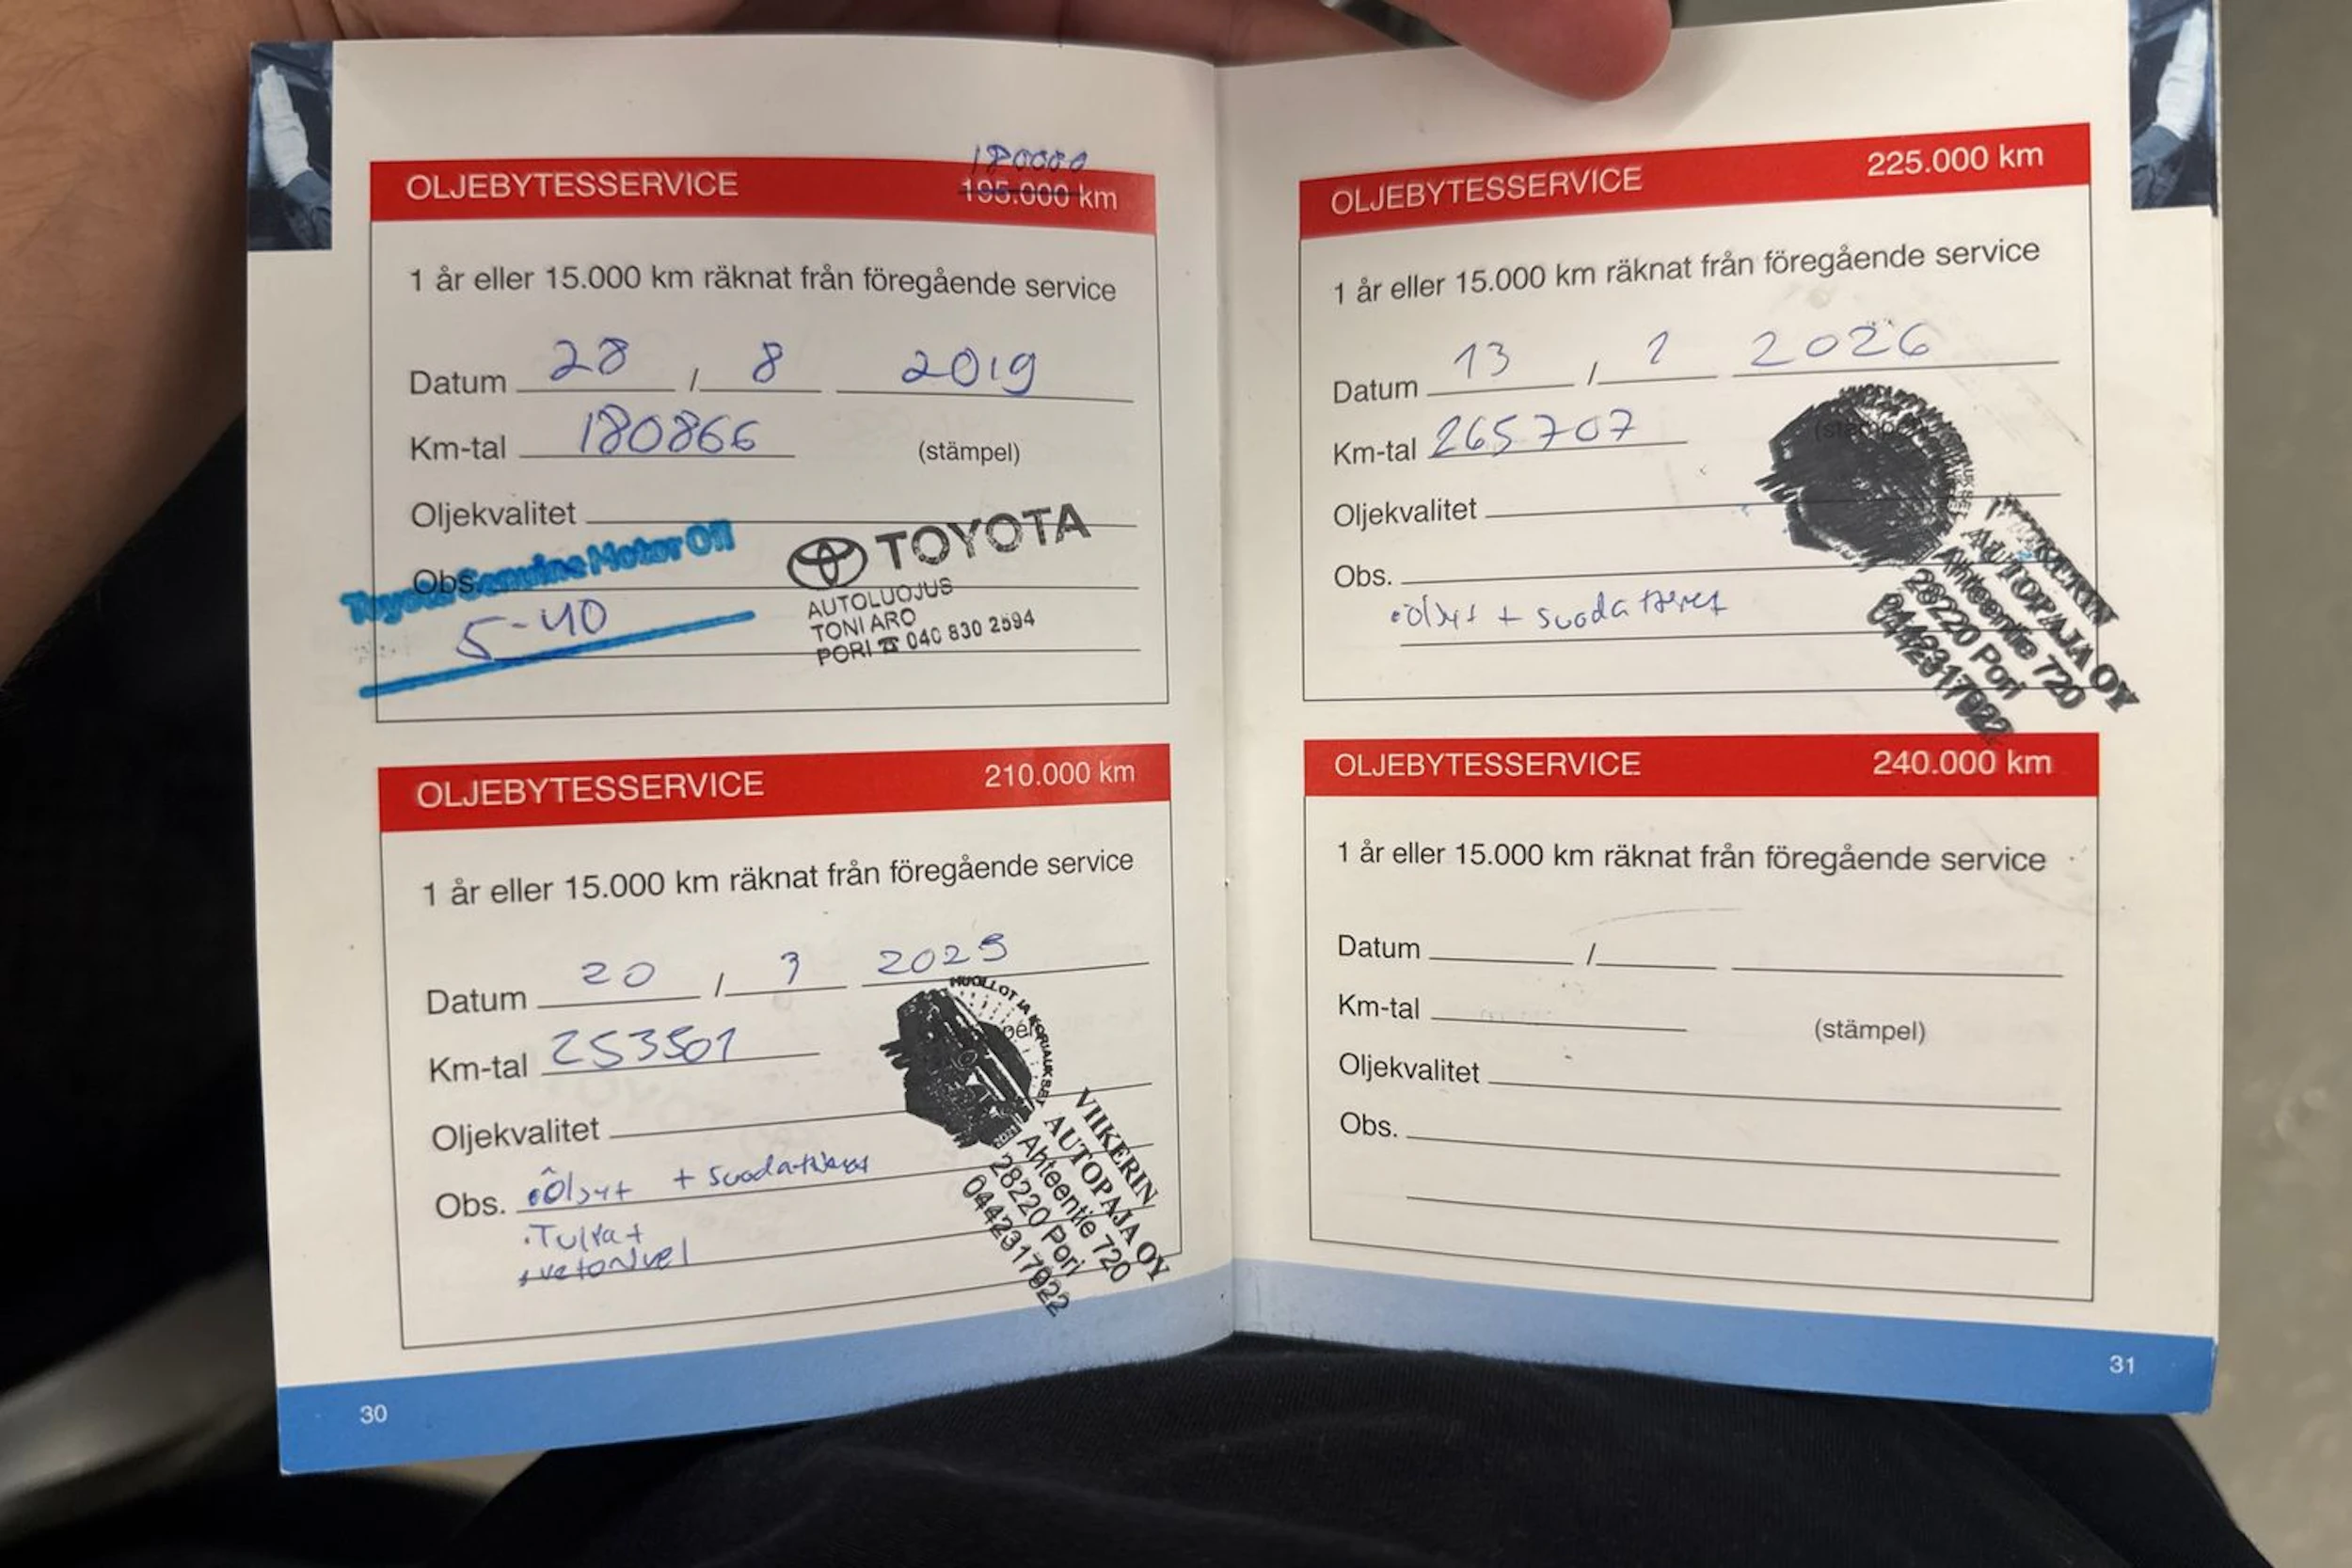 180000
OLJEBYTESSERVICE 195.000 km
1 år eller 15.000 km räknat från föregående service
Datum 28 / 8 2019
Km-tal 180866 (stämpel)
Oljekvalitet
Toyota Genuine Motor Oil
Obs.
5-40
TOYOTA
AUTOLUOJUS
TONI ARO
PORI ☎ 040 830 2594
OLJEBYTESSERVICE 210.000 km
1 år eller 15.000 km räknat från föregående service
Datum 20 / 3 2025
Km-tal 253501
Oljekvalitet
Obs. • Öljyt + suodattimet
• Tulpat
+ vetonivel
HUOLLOT JA KORJAUKSET
VIIKERIN
AUTOPAJA OY
Ahteentie 720
28220 Pori
0442317922
30
OLJEBYTESSERVICE 225.000 km
1 år eller 15.000 km räknat från föregående service
Datum 13 / 1 2026
Km-tal 265707 (stämpel)
Oljekvalitet
Obs.
• öljyt + suodattimet
VIIKERIN
AUTOPAJA OY
Ahteentie 720
28220 Pori
0442317922
OLJEBYTESSERVICE 240.000 km
1 år eller 15.000 km räknat från föregående service
Datum /
Km-tal (stämpel)
Oljekvalitet
Obs.
31